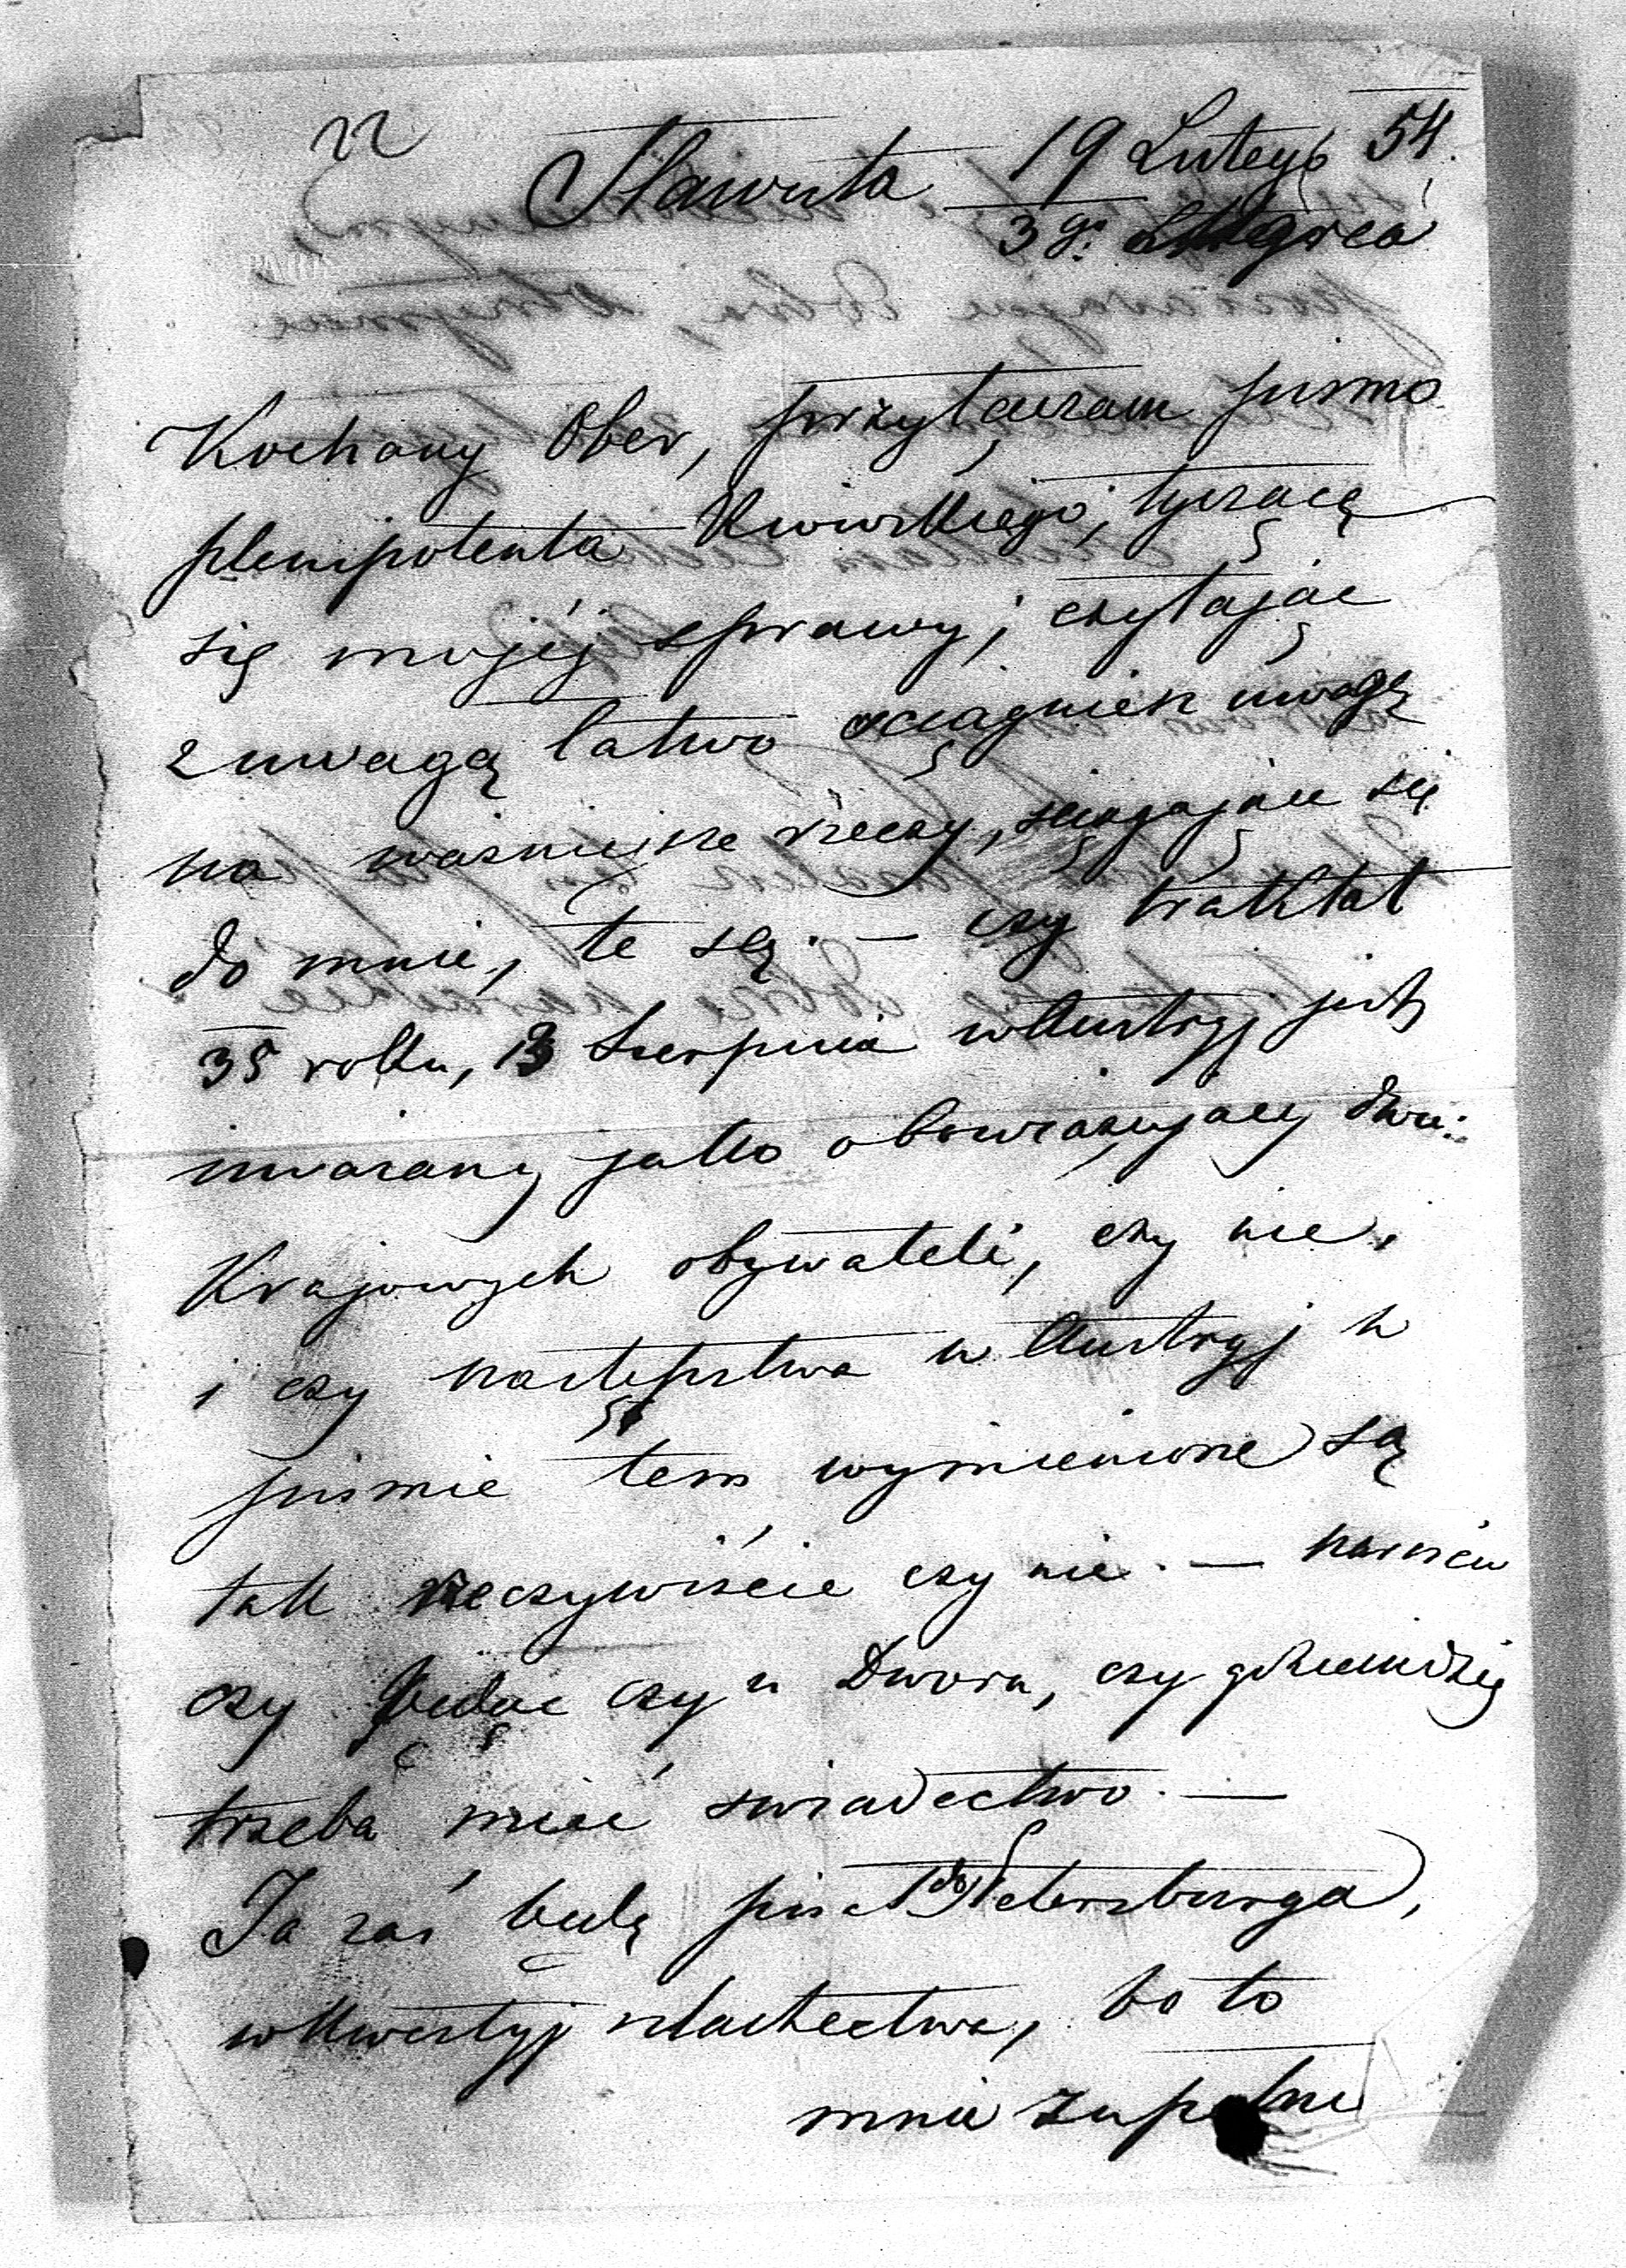 22
Sławuta 19 Lutego 54.
3 go Marca
Kochany Ober, przyłączam pismo
plenipotenta tyczącę
się mojéj sprawy; czytając
z uwagą łatwo ściągniesz uwagę
na ważniejsze rzeczy, ściągające się
do mnie, te są. — czy traktat
35 roku, 13 Sierpnia w Austryj jest
uwarany jako obowiązujący dwu:
Krajowych obywateli, czy nie,
i czy następstwa w Austryj w
piśmie tem wymienione są
tak rzeczywiście czy nie. — nareście
czy będąc czy u Dworu, czy gdzieindziej
trzeba mieć swiadectwo. —
Ja zaś będę pisał do Petersburga,
w kwestyj szlachectwa, bo to
mnie zupełnie